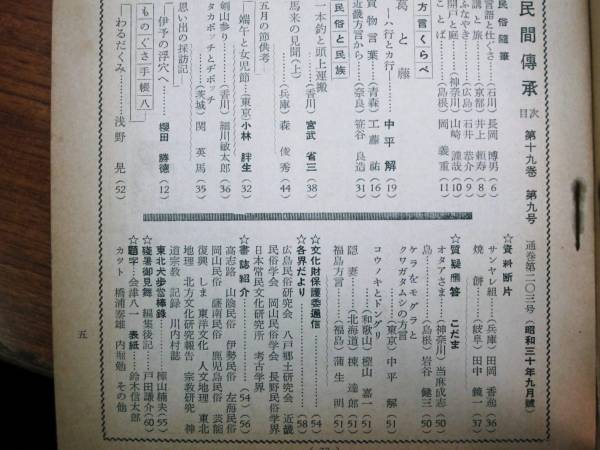 民間傳承 目次 第十九巻 第九号 通巻第二〇三号 (昭和三十年九月號)
民俗随筆
言語と仕ぐさ…(石川)長岡博男(6)
講と旅…(京都)井上頼寿(8)
ふなやき…(広島)石井恭介(9)
開戸と庭…(神奈川)山崎
(10)
ことば…(島根)岡義重(11)
方言くらべ
葛と藤
―ハ行とカ行―…中平解(19)
買物言葉…(青森)工藤祐(16)
近畿方言から…(奈良)笹谷良造(31)
民俗と民族
一本釣と頭上運搬
(香川)宮武省三(38)
馬来の見聞(上)
(兵庫)森俊秀(44)
五月の節供考
―端午と女児節―(東京)小林胖生(32)
剣山参り…(香川)細川敏太郎(36)
タカボッチとデボッチ
(茨城)関英馬(35)
思い出の採訪記
伊予の浮穴へ…櫻田勝徳(12)
ものぐさ手帳八
―わるだくみ―…浅野晃(52)
☆資料断片
サンヤレ組…(兵庫)田岡香逸(36)
焼餅…(岐阜)田中鏡一(37)
☆質疑應答 こだま
オタアさま…(神奈川)当麻成志(50)
鳥…(島根)岩谷健三(50)
ケラをモグラと
クワガタムシの方言
(東京)中平解(51)
コウノキとドンブリ
(和歌山)樫山嘉一(51)
隠妻…(北海道)棟達郎(51)
福島方言…(福島)蒲生明(51)
☆文化財保護委通信…(54)
☆各界だより…(58)
広島民俗研究会 八戸郷土研究会 近畿
民俗学会 岡山民俗学会 長野民俗学会
日本常民文化研究所 考古学界
☆書誌紹介…(54)(56)
高志路 山陰民俗 伊勢民俗 左海民俗
岡山民俗 薩南民俗 鹿児島民俗 芸能
復興 しま 東洋文化 人文地理 東北
地理 北方文化研究報告 宗教研究 神
道宗教 記録 川内村誌
東北犬歩當棒錄…樟山楠夫(55)
☆殘暑御見舞 編集後記…戸田謙介(60)
☆題字…会津八一 表紙…鈴木信太郎
カット 橋浦泰雄 内堀勉 その他
五